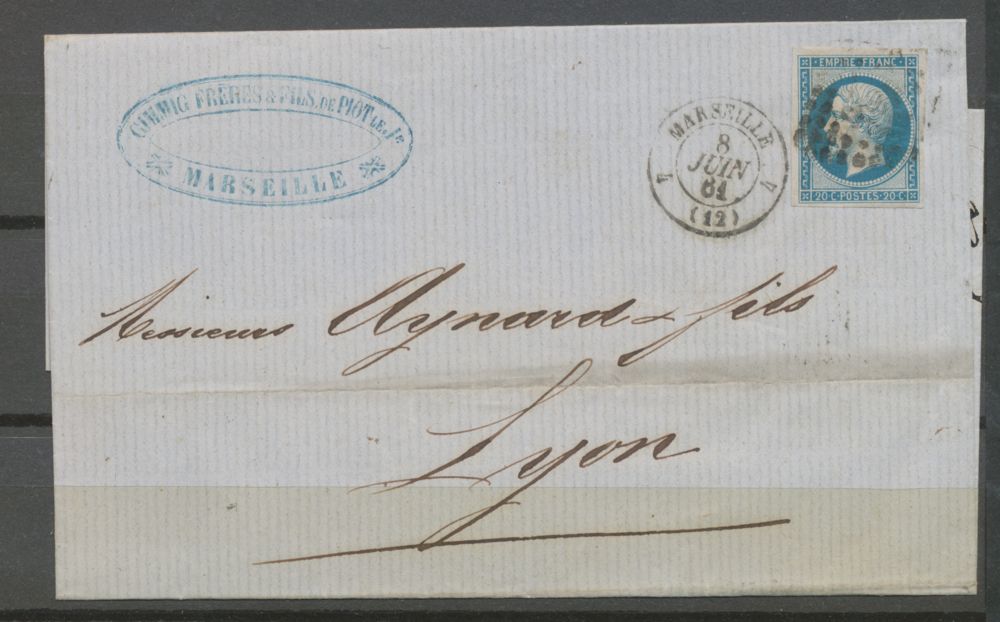 FRÈRES & FILS, DE PIOT
MARSEILLE
MARSEILLE
8
JUIN
61
(12)
EMPIRE FRANC
20 C · POSTES · 20 C
Messieurs Aynard & fils
Lyon